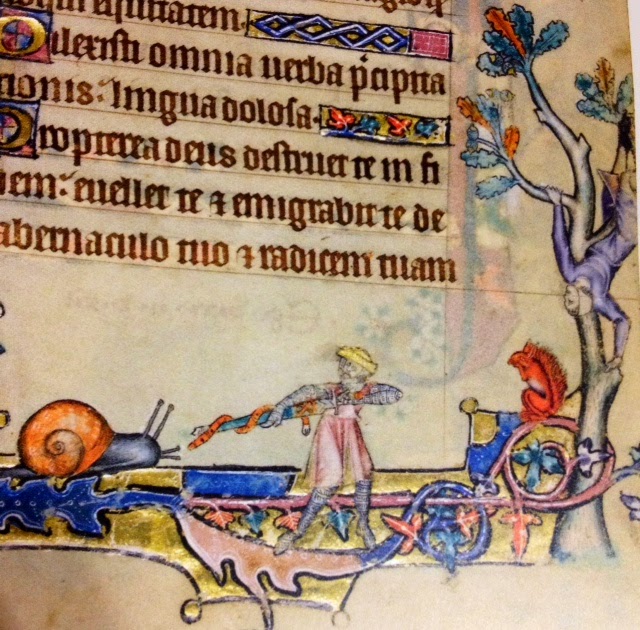 equitatem.
Dilexisti omnia uerba p̄cipita
cionis: lingua dolosa.
Propterea deus destruet te in fi
nem: euellet te ⁊ emigrabit te de
abernaculo tuo ⁊ radicem tuam